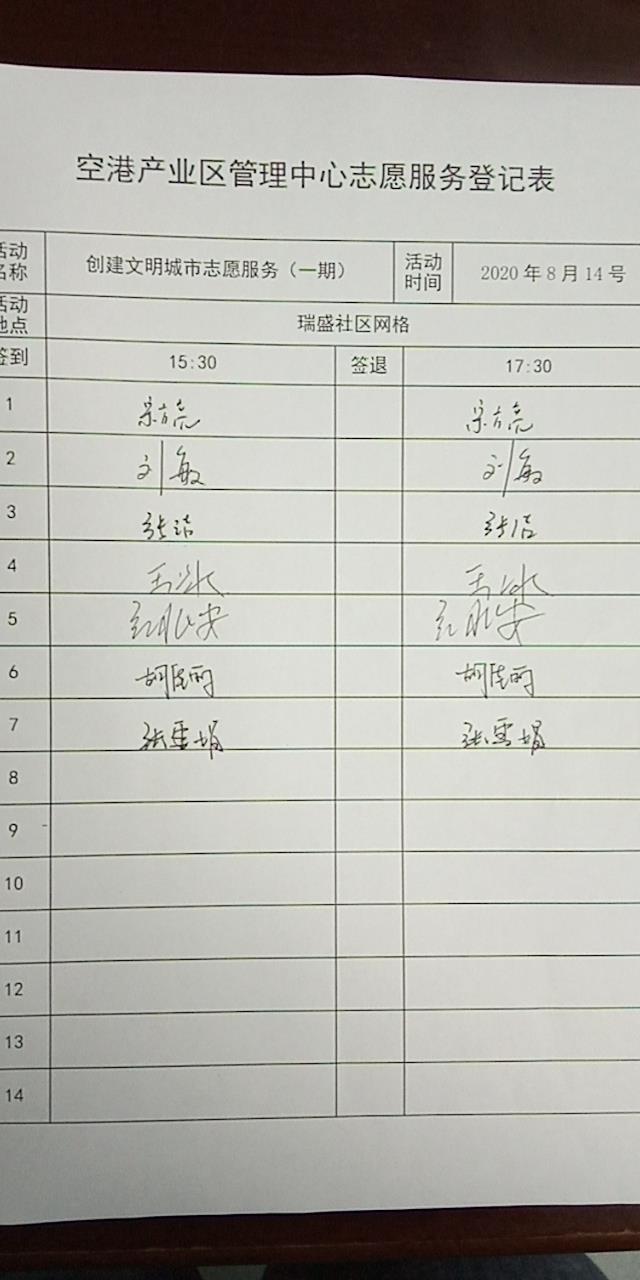 空港产业区管理中心志愿服务登记表
活动名称 创建文明城市志愿服务（一期） 活动时间 2020年8月14号
活动地点 瑞盛社区网格
签到 15:30 签退 17:30
1
2 刘敏 刘敏
3 张洁 张洁
4 王冰 王冰
5
6
7 张雪娟 张雪娟
8
9
10
11
12
13
14